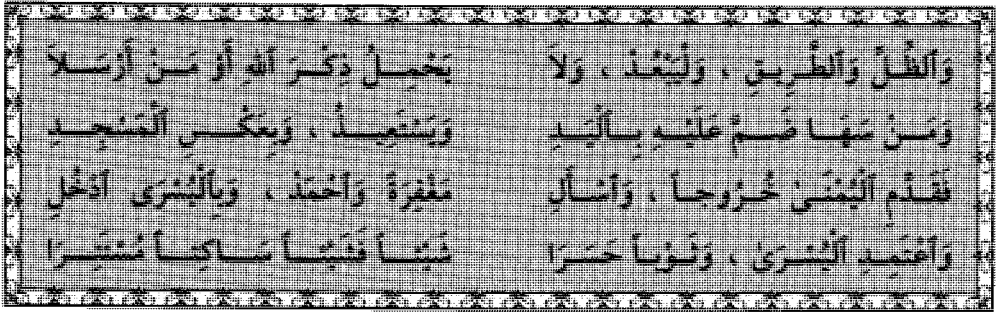 وَٱلظِّلِّ وَٱلطَّرِيقِ ، وَلْيَبْعُدْ ، وَلاَ يَحْمِلْ ذِكْرَ ٱللهِ أَوْ مَنْ أَرْسَلاَ
وَمَنْ سَهَا ضَمَّ عَلَيْهِ بِٱلْيَدِ وَيَسْتَعِيذُ ، وَبِعَكْسِ ٱلْمَسْجِدِ
فَقَدِّمِ ٱلْيُمْنَىٰ خُرُوجاً ، وَٱسْأَلِ مَغْفِرَةً وَٱحْمَدْ ، وَبِٱلْيُسْرَى ٱدْخُلِ
وَٱعْتَمِدِ ٱلْيُسْرَىٰ ، وَثَوْباً حَسَرَا شَيْئـاً فَشَيْئـاً سَاكِتـاً مُسْتَتِرَا